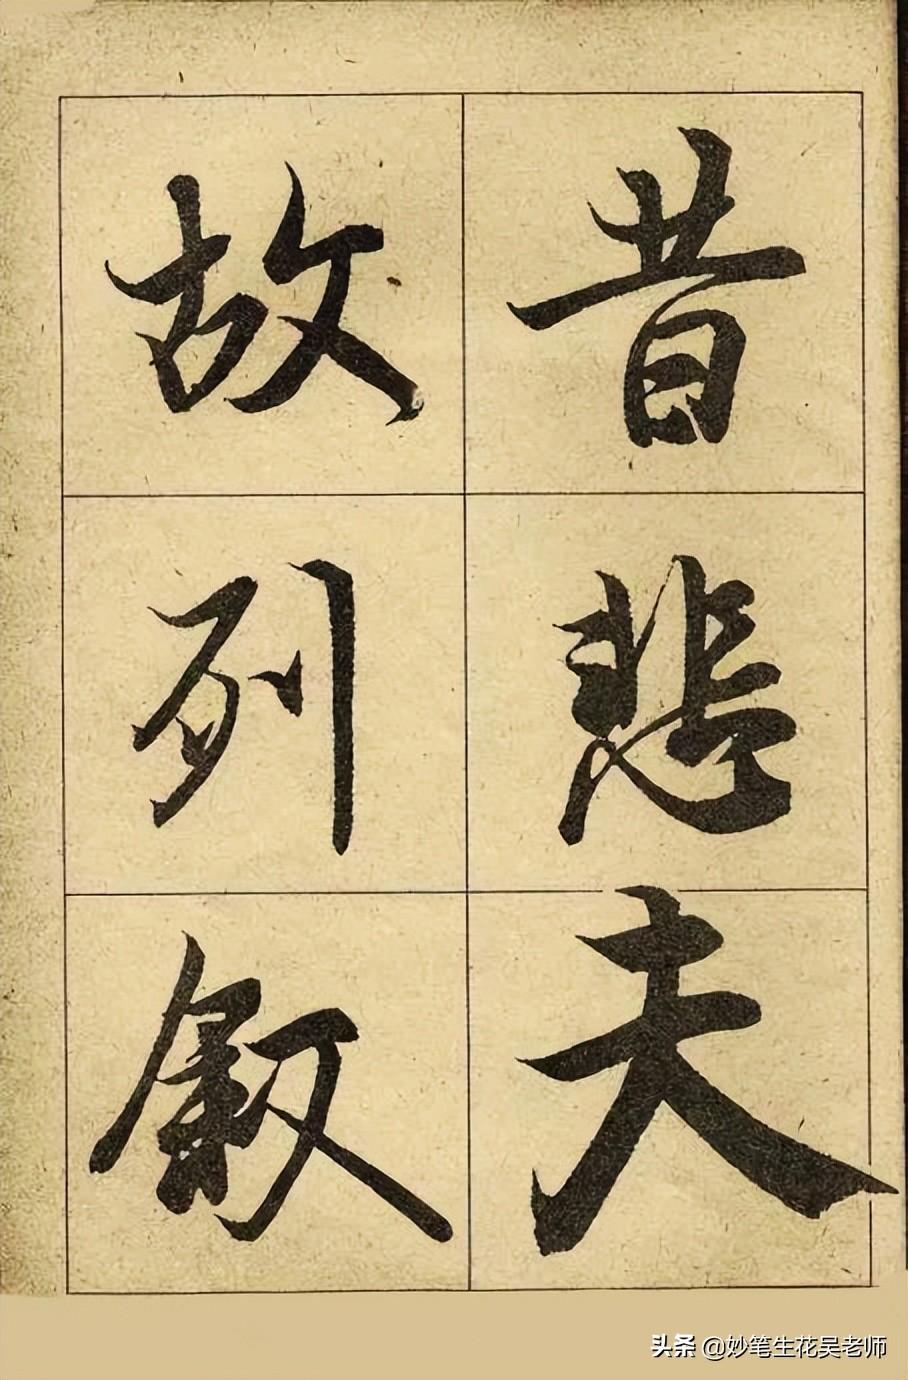 昔悲夫
故列叙
头条 @妙笔生花吴老师